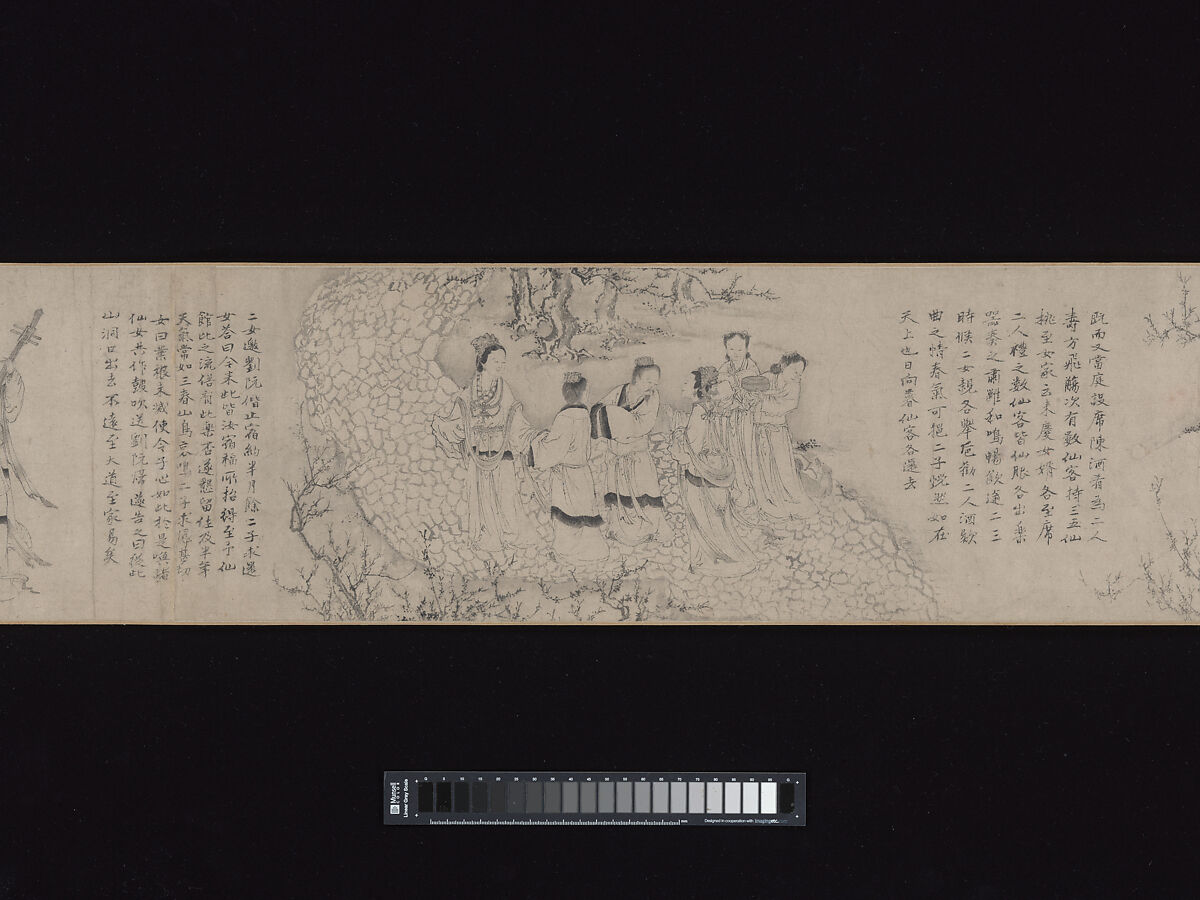 既而又當庭設席陳酒肴為二人
壽方飛觴次有數仙客持三五仙
桃至女家云來慶女壻各至席
二人禮之數仙客皆仙服各出樂
器奏之肅雝和鳴暢飲達二三
時候二女親各舉卮勸二人酒歡
曲之情春氣可挹二子恍然如在
天上也日向暮仙客各還去
二女邀劉阮偕止宿約半月餘二子求還
女答曰今來此皆汝宿福所招得至予仙
館比之流俗有此樂否遂懇留住及半年
天氣常如三春山鳥哀鳴二子求歸甚切
女曰業根未滅使令子心如此於是喚諸
仙女共作鼓吹送劉阮歸遂告之曰從此
山洞口出去不遠至大道至家易矣
Munsell
COLOR
Linear Gray Scale
0 5 10 15 20 25 30 35 40 45 50 55 60 65 70 75 80 85 90 95 0
mm
Designed in cooperation with imagingetc.com